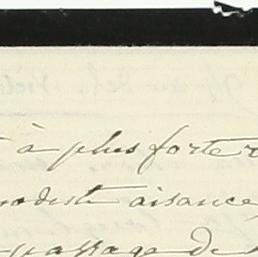 à plus forte r
modeste aisance
passage de